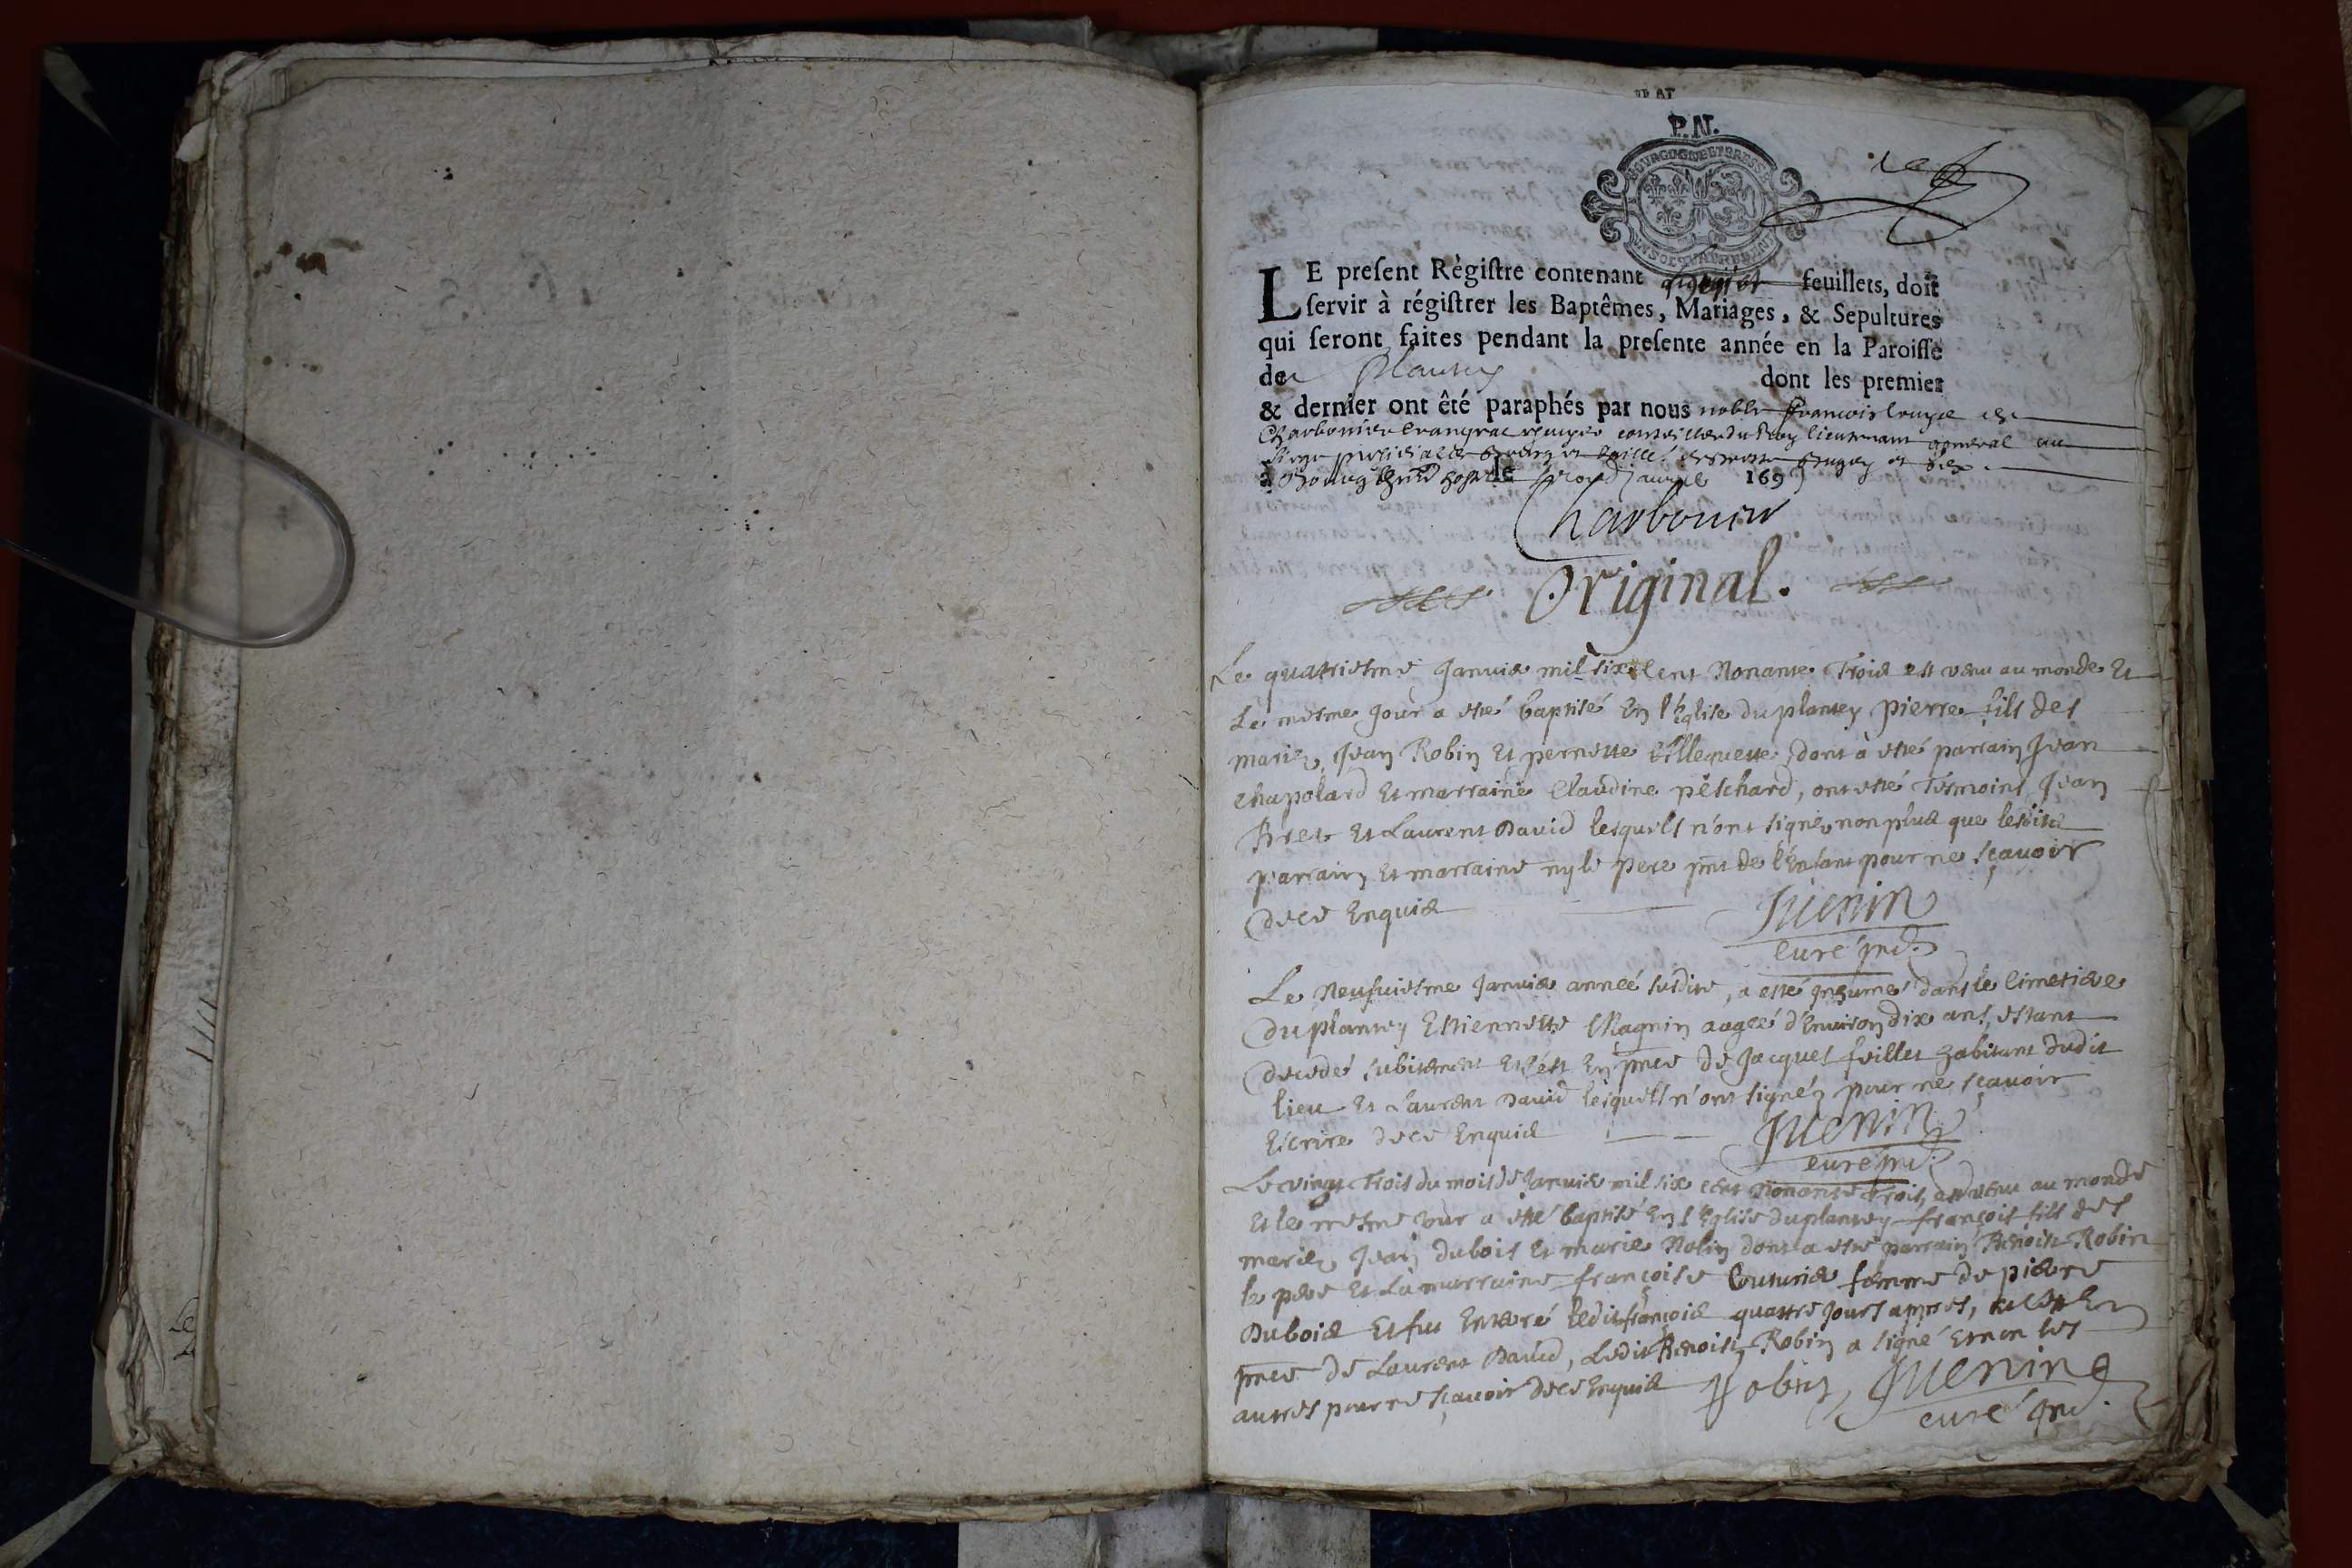 P.N.
BOVRGOGNE ET BRESSE
LE present Régistre contenant feuillets, doit
servir à régistrer les Baptêmes, Mariages, & Sepultures
qui seront faites pendant la presente année en la Paroisse
de Plantey dont les premier
& dernier ont êté paraphés par nous noble françois
Charbonier conseiller du Roy lieutenant general au
siege presidial de Bourg et Bresse Bugey et Gex
à Bourg le second janvie 1693
Charbonier
Original.
Le quattriesme Janvie mil six Cent Nonante Trois est venu au monde Et
Le mesme Jour a esté baptisé En l'Eglise du plantey pierre fils des
mariez Jean Robin Et pernette dont à esté parrain Jean
Chapolard Et marraine Claudine peschard, ont esté Tesmoins Jean
Bret Et Laurent David lesquels n'ont signé non plus que lesdits
parrain Et marraine ny le pere pnt de l'Enfant pour ne sçavoir
dece Enquis
Juenin
curé
Le Neufviesme Janvie année susdite, a esté Inhumé dans le Cimetiere
du plantey Estiennette Chagnin aagée d'Environ dix ans, estant
decedé subitement Et s'est En pnce de Jacques feillet habitant dudit
lieu Et Laurent David lesquels n'ont signéz pour ne sçavoir
Escrire dece Enquis
Juenin
curé
Le vingt Trois du mois de Janvie mil six cent Nonante Trois, est venu au monde
Et le mesme Jour a esté baptisé En l'Eglise du plantey françois fils des
mariez Jean dubois Et marie Robin dont a esté parrain Benoist Robin
le pere Et La marraine françoise Couturie femme de pierre
Dubois Et fut Enterré ledit françois quattre Jours apres, En
pnce de Laurent David, Ledit Benoist Robin a signé Et non les
autres pour ne sçavoir dece Enquis Robin Juenin
curé